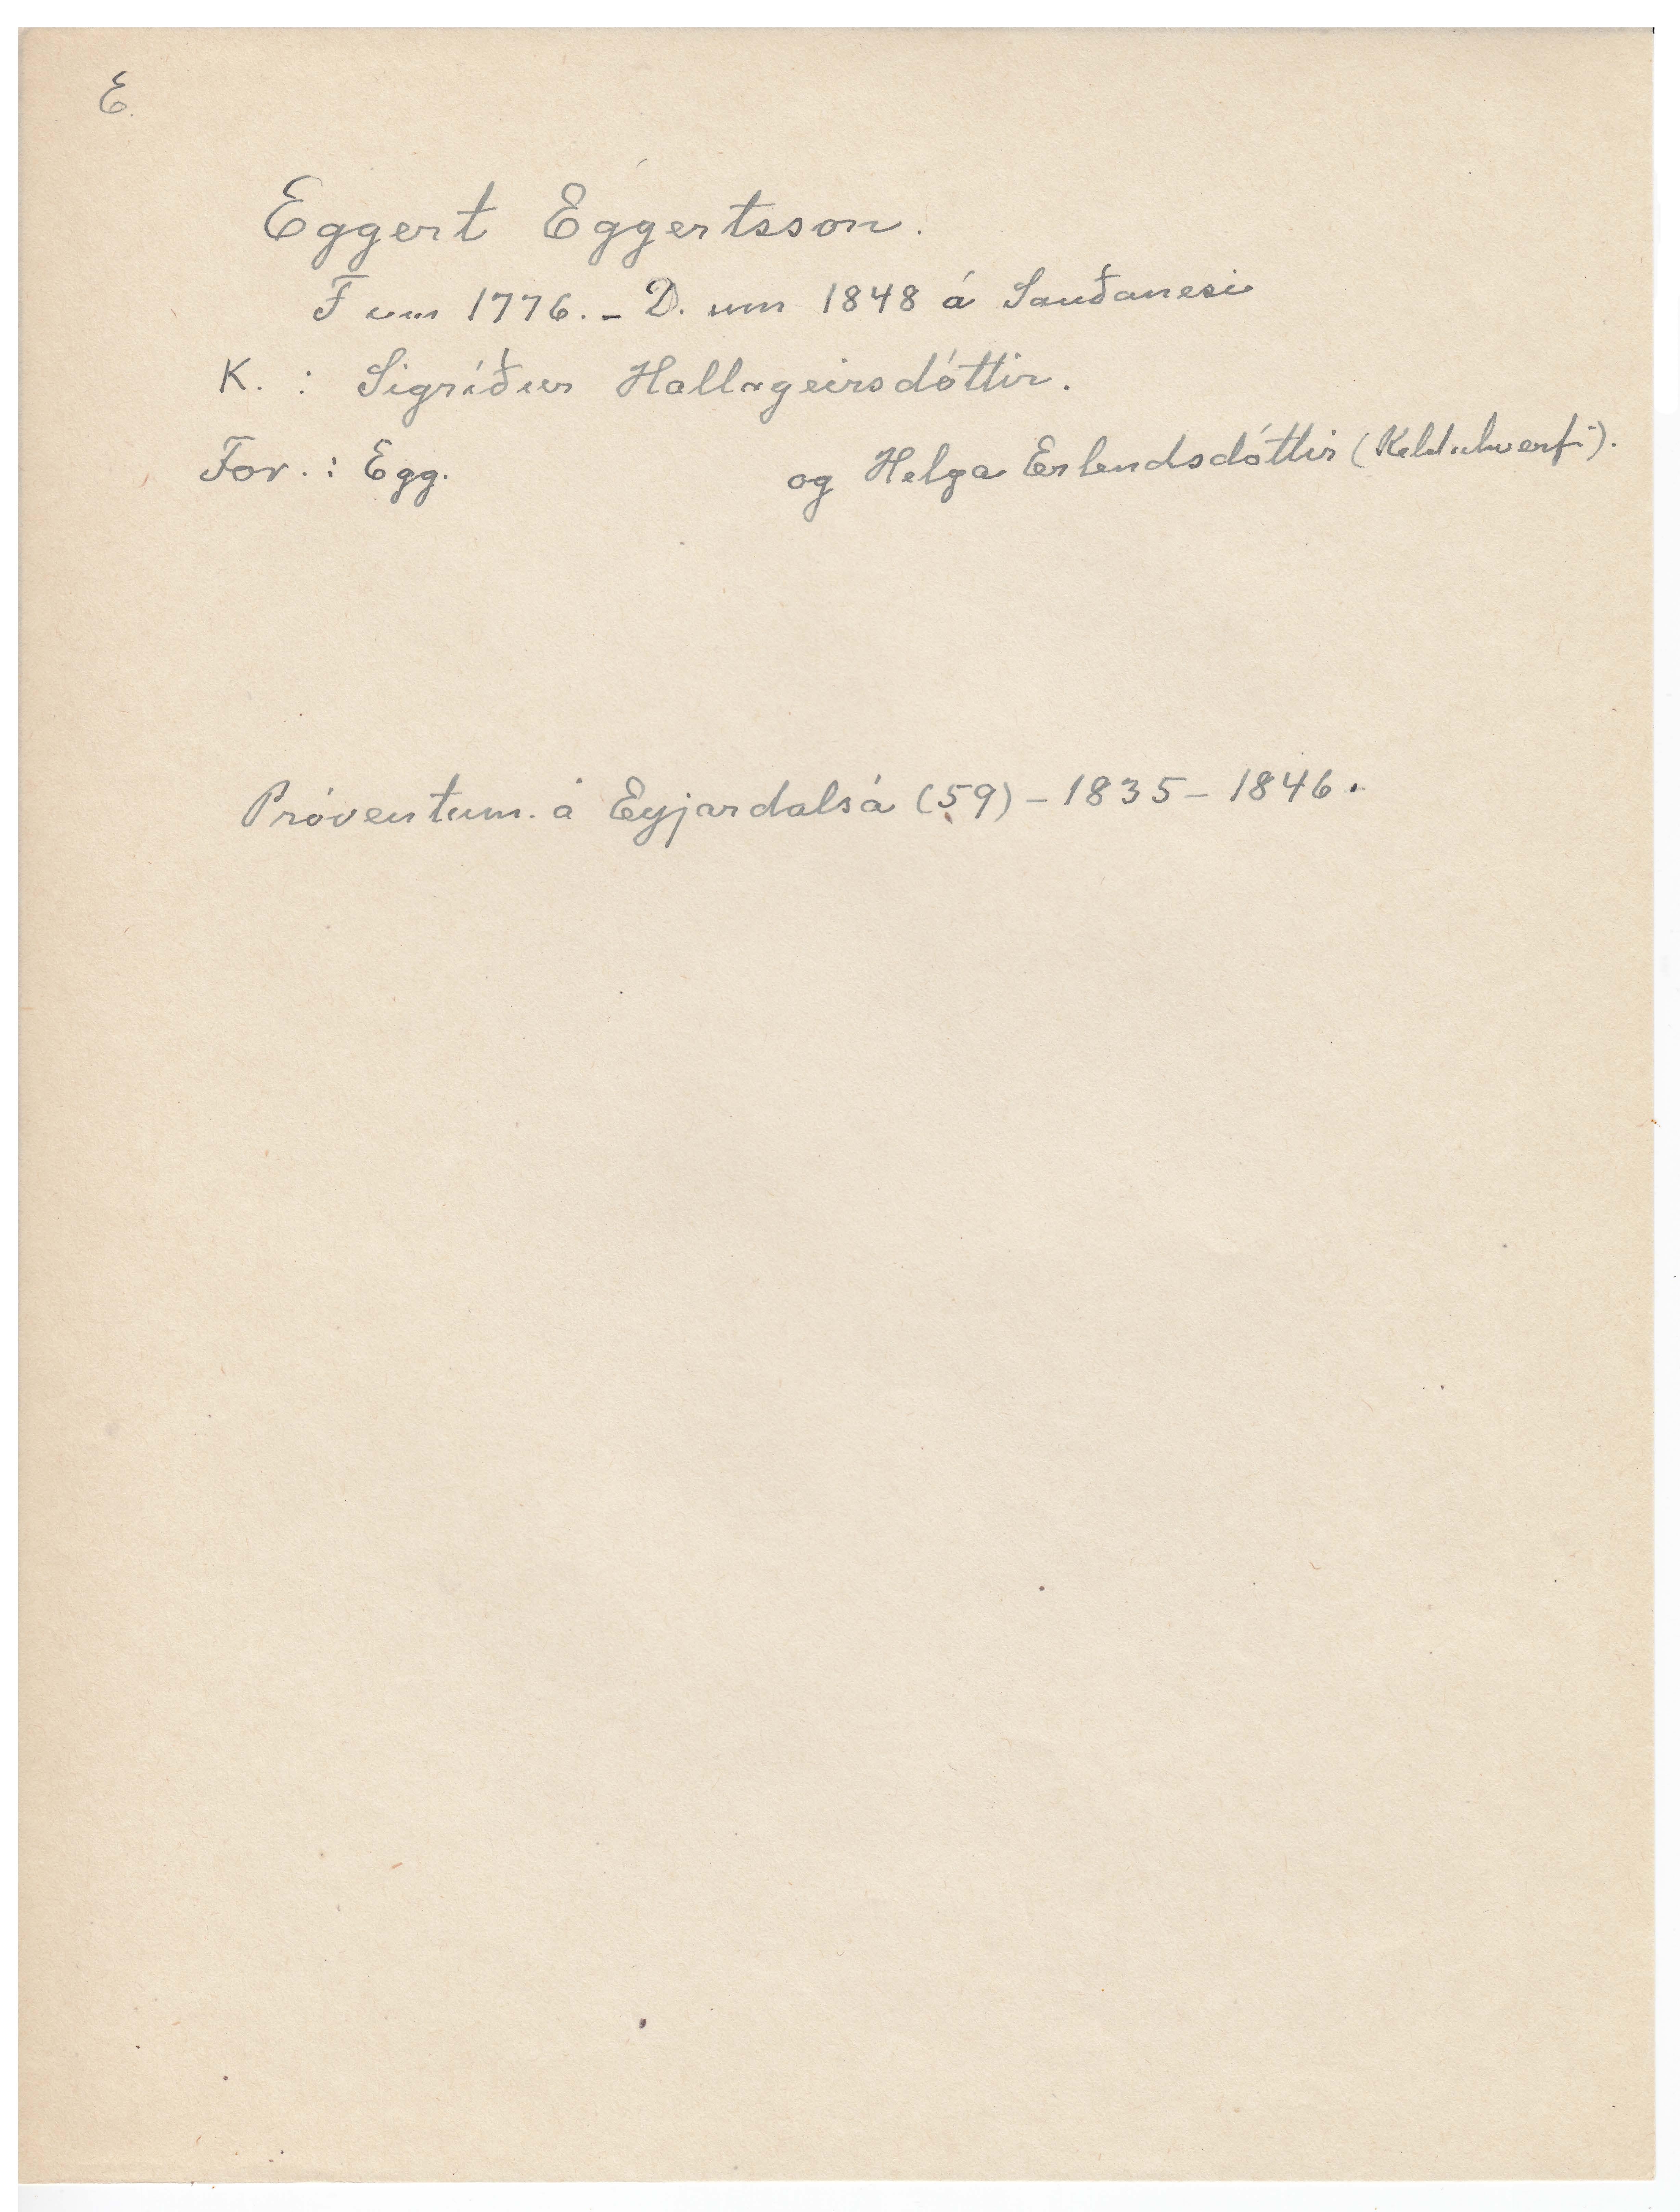 E.
Eggert Eggertsson.
F um 1776. - D. um 1848 á Sauðanesi
K. : Sigríður Hallageirsdóttir.
For. : Egg. og Helga Erlendsdóttir (Kelduhverfi).
Próventum. á Eyjardalsá (59) - 1835 - 1846.